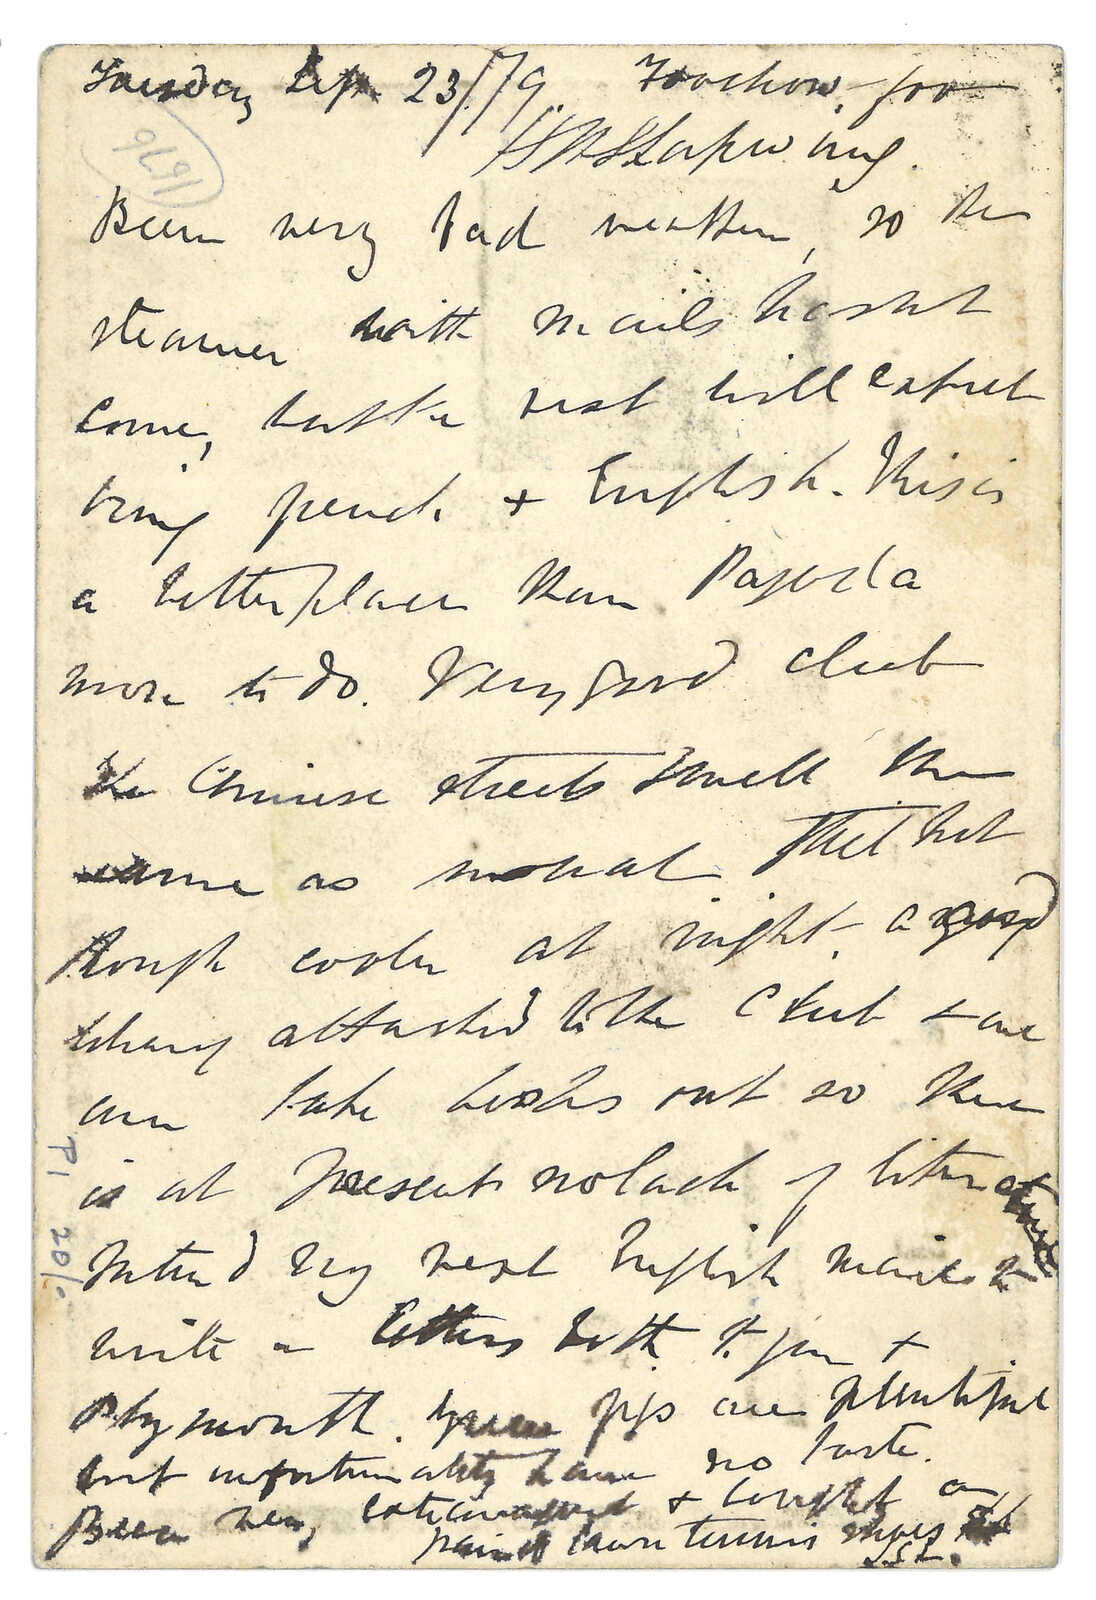 Tuesday Sep 23/79. Foochow-foo
HMS Lapwing.
Been very bad weather, so the
steamer with mails hasnt
come, but the next will
bring french & English. This is
a better place than Pagoda
more to do. Very good club
the Chinese streets smell the
same as usual Still hot
though cooler at night. a good
library attached to the Club & one
can take books out so there
is at present no lack of literature
Intend by next English mail to
write letters both to you &
Plymouth. figs are plentiful
but unfortunately have no taste.
Been very extravagant & bought a
pair of lawn tennis shoes
1676
P1 20/-